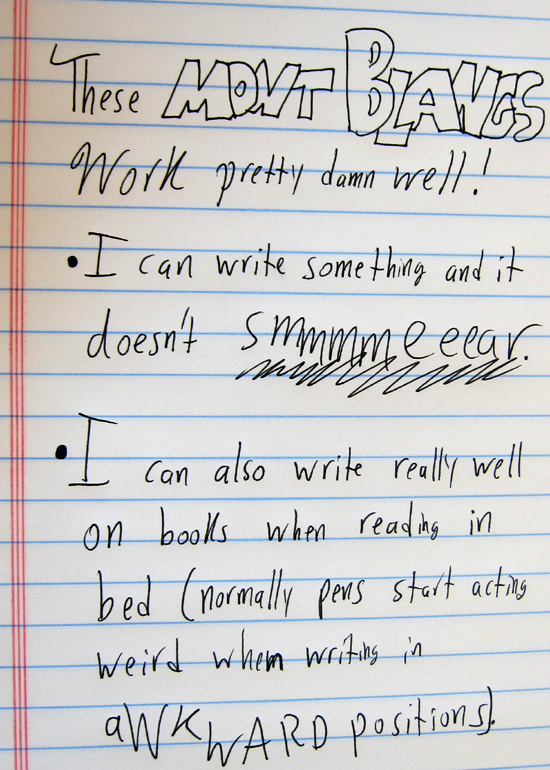 These MONT BLANCS
Work pretty damn well!
• I can write something and it
doesn't smmmmeeear.
• I can also write really well
on books when reading in
bed (normally pens start acting
weird when writing in
aWKWARD positions).